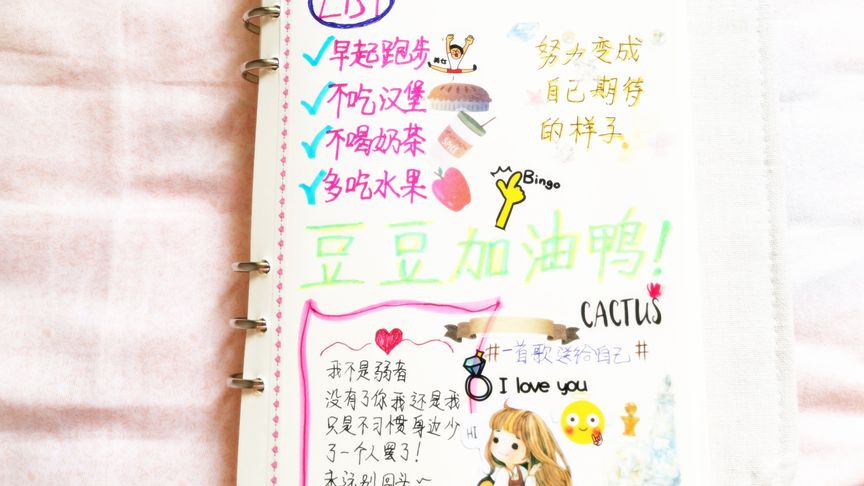 LIST
早起跑步
不吃汉堡
不喝奶茶
多吃水果
努力变成
自己期待
的样子
Bingo
豆豆加油鸭!
CACTUS
#一首歌送给自己#
I love you
HI
我不是弱者
没有了你我还是我
只是不习惯身边少
了一个人罢了!
未达别回头~